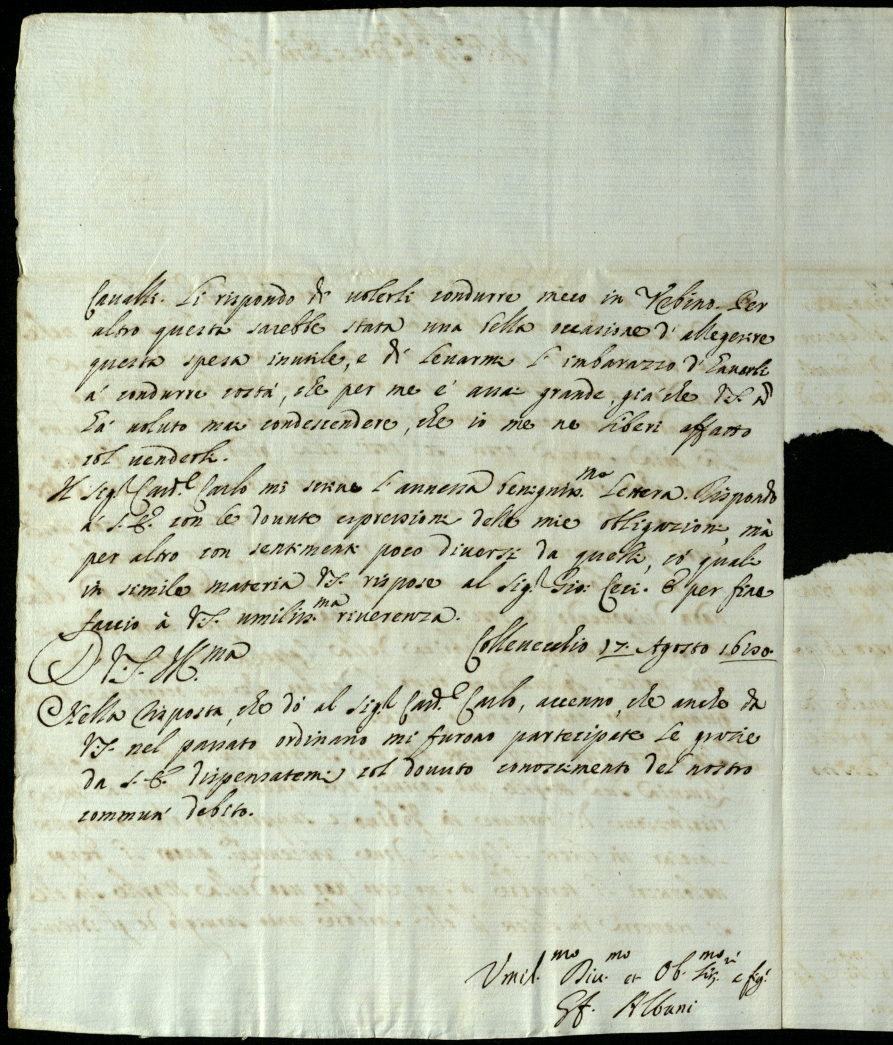 Cavalli. Li rispondo di volerli condurre meco in Vrbino. Per
altro questa sarebbe stata una bella occasione d' allegerire
questa spesa inutile, e di levarmi l' imbarazzo d' haverli
a' condurre costà, che per me e' assai grande, già che V.S. n
hà voluto mai condescendere, che io me ne liberi affatto
col venderli.
Il Sig.r Card.l Carlo mi scrive l' annessa benigniss.ma lettera. Rispondo
a' S.E. con le dovute espressioni delle mie obligazioni, mà
per altro con sentimenti poco diversi da quelli, co' quali
in simile materia V.S. rispose al Sig.r Gio: Ceci. E per fine
faccio à V.S. umiliss.ma riverenza.
D V.S. Ill.ma Collevecchio 17. Agosto 1690.
Nella Risposta, che dò al Sig.r Card.l Carlo, accenno, che anche da
V.S. nel passato ordinario mi furono partecipate le grazie
da S.E. dispensatemi col dovuto conoscimento del nostro
commun' debito.
Vmil.mo Div.mo et Ob.mo
Albani